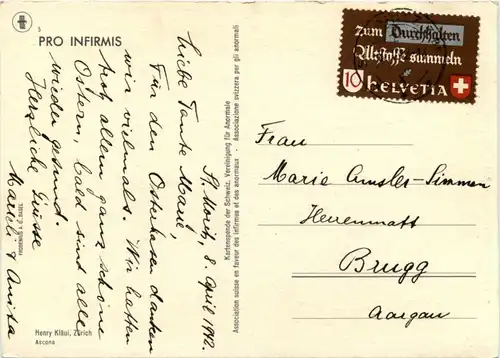 5
PRO INFIRMIS
St. Moritz, 8. April 1942.
Liebe Tante Marie,
Für den Osterhasen danken
wir vielmals. Wir hatten
trotz allem ganz schöne
Ostern, bald sind alle
wieder gesund.
Herzliche Grüsse
Marteli & Anita
Henry Kläui, Zürich
Ascona
Kartenspende der Schweiz. Vereinigung für Anormale
Association suisse en faveur des infirmes et des anormaux
Associazione svizzera per gli anormali
Zum Durchhalten
Altstoffe sammeln
10 HELVETIA
Frau
Marie Amsler-Simmen
Herrenmatt
Brugg
Aargau